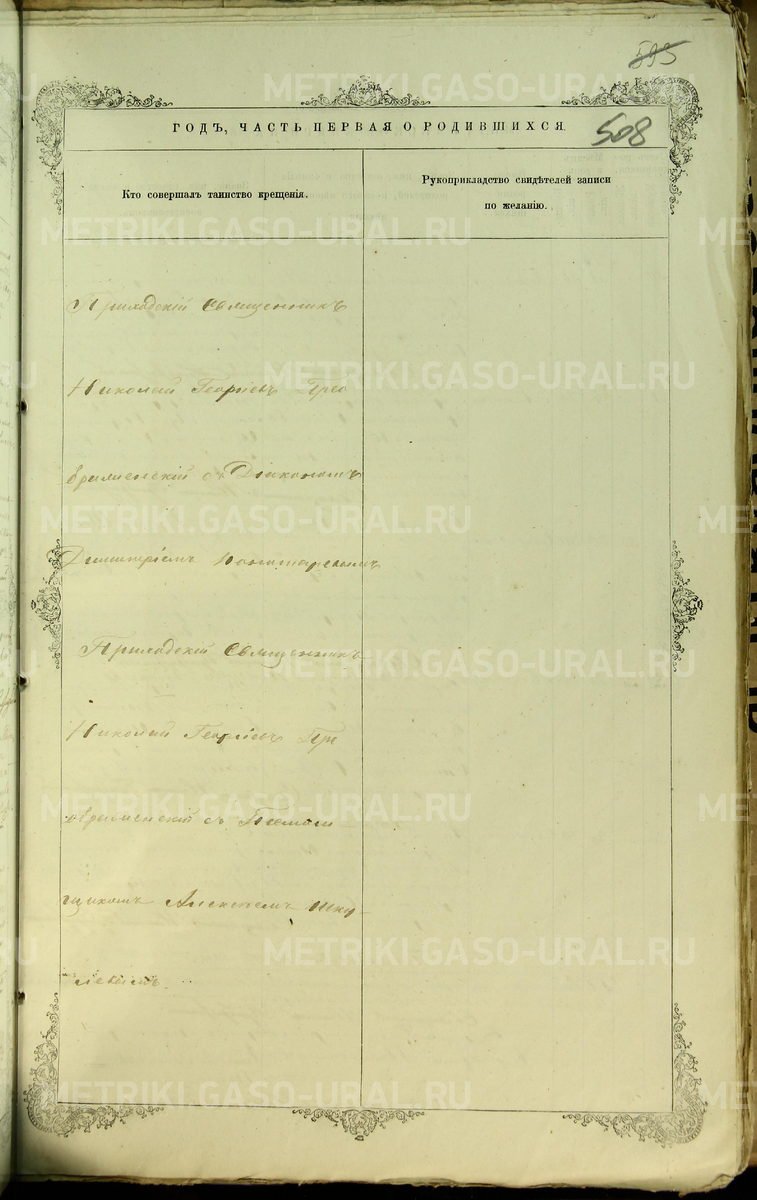 593
508
ГОДЪ, ЧАСТЬ ПЕРВАЯ О РОДИВШИХСЯ.
Кто совершалъ таинство крещенія.
Рукоприкладство свидѣтелей записи
по желанію.
Приходскій Священникъ
Николай Георгіевъ
съ Діакономъ
Димитріемъ Пономаревымъ
Приходскій Священникъ
Николай Георгіевъ
съ Псалом
щикомъ Алексѣемъ
METRIKI.GASO-URAL.RU